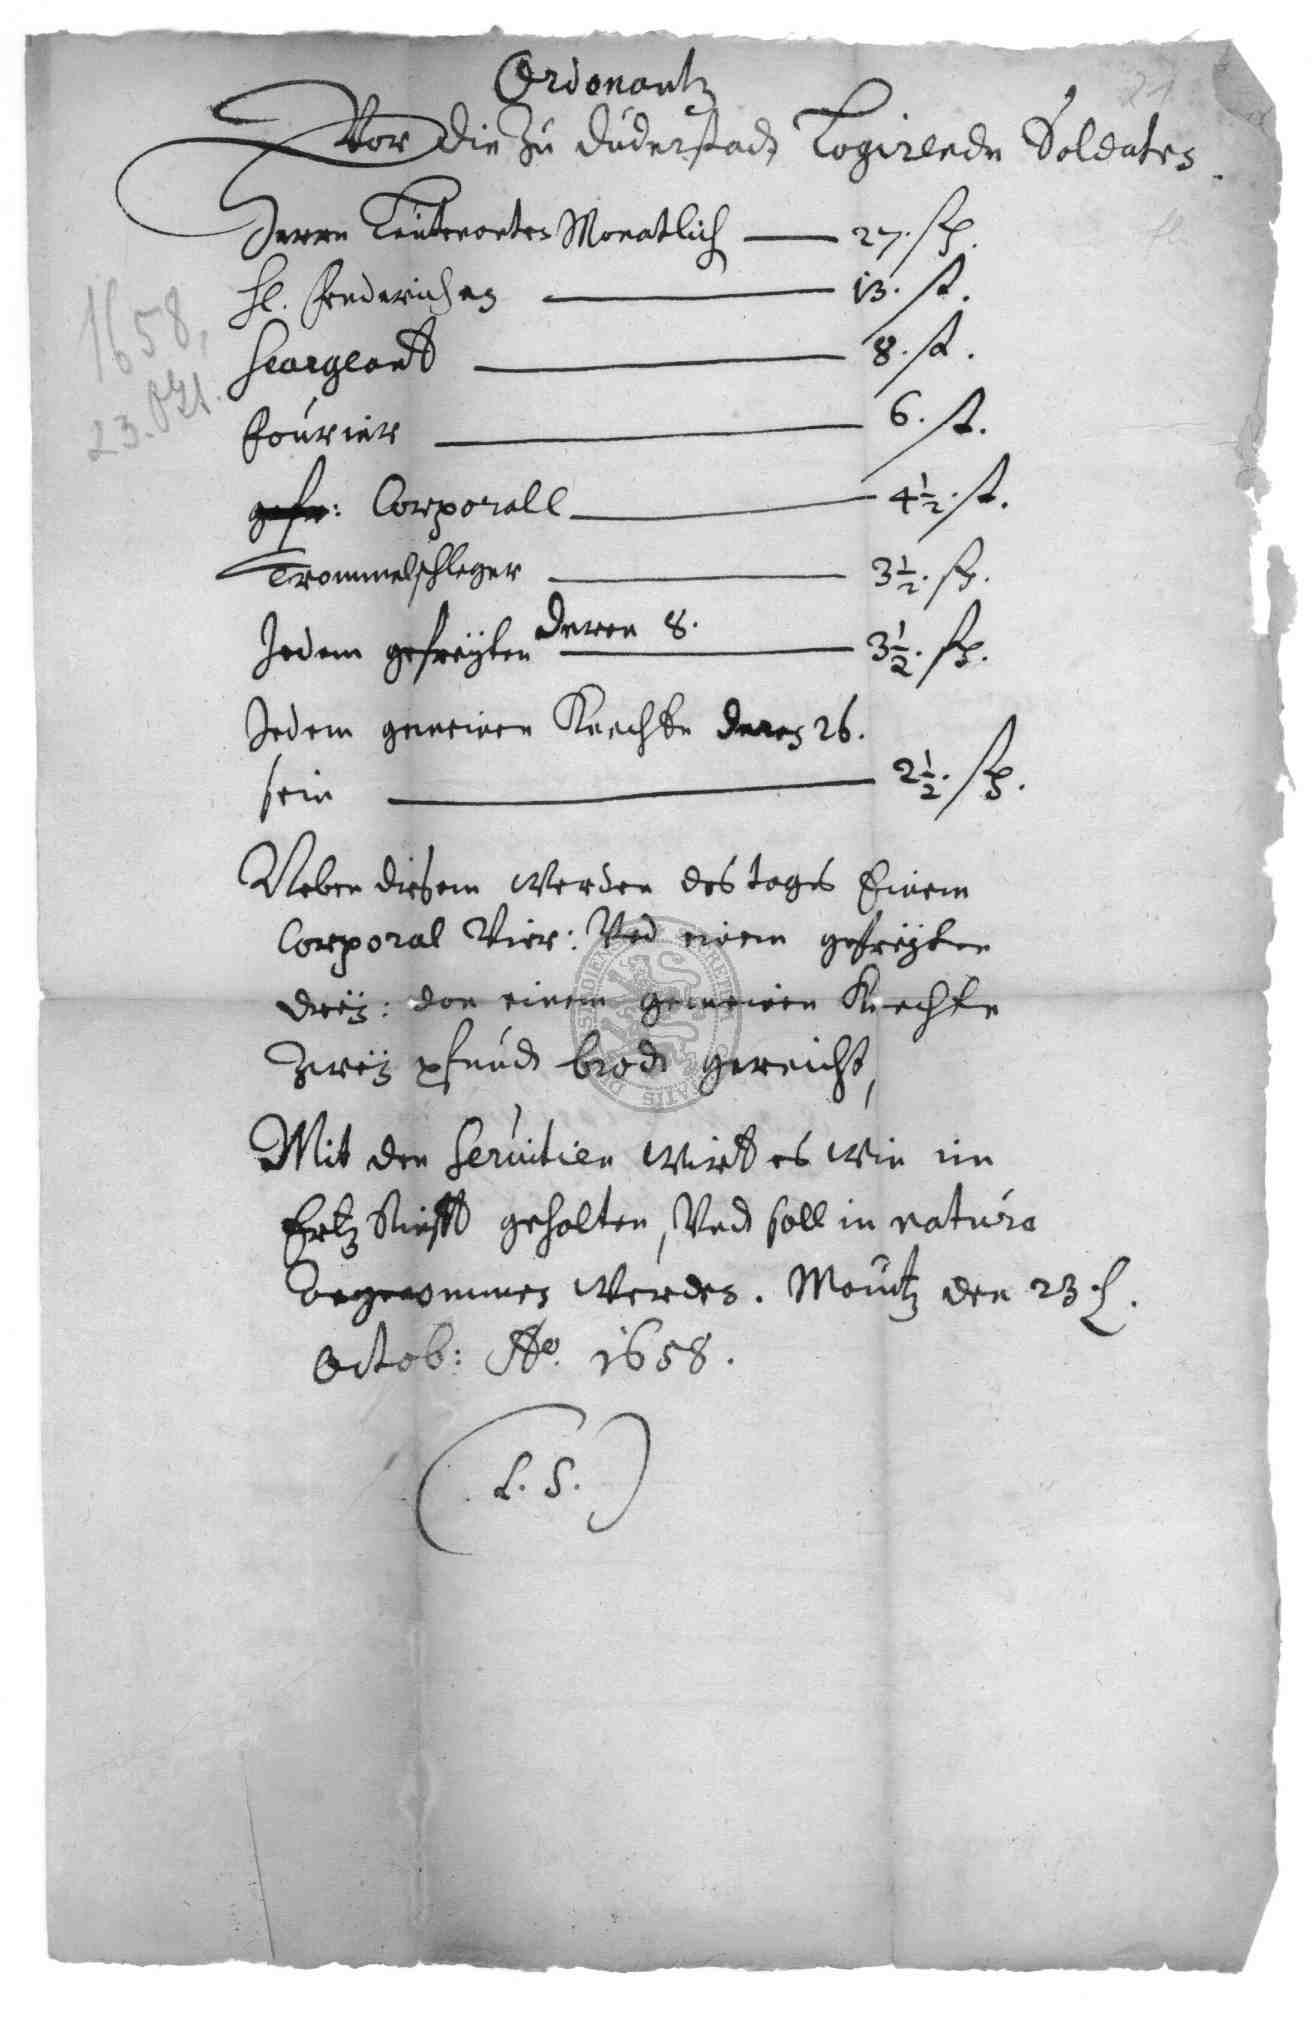 21
Ordonantz
Vor die zu Duderstadt Logirende Soldaten.
Herrn Leutenanten Monatlich — 27. fl.
H. Frederichen — 13. fl.
Seargeant — 8. fl.
Fourier — 6. fl.
gefr: Corporall — 4½. fl.
Trommelschleger — 3½. fl.
Jedem gefreÿten deren 8. — 3½. fl.
Jedem gemeinen Knechte deren 26.
sein — 2½. fl.
Neben diesem werden des tags Einem
Corporal Vier: Vnd einem gefreÿten
dreÿ: dan einem gemeinen Knechte
Zweÿ pfundt brodt gereicht,
Mit den Seruitien wirdt es wie im
Ertz Stifft gehalten, Vndt soll in natura
werden. Maintz den 23.
Octob: Ao. 1658.
(L. S.)
1658,
23. Okt.